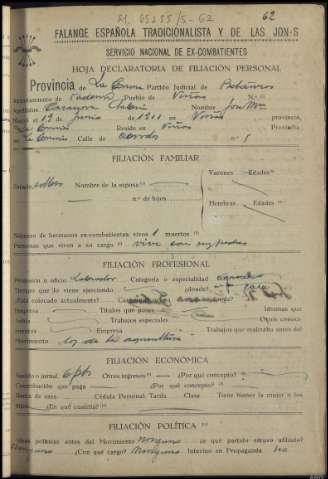 62
FALANGE ESPAÑOLA TRADICIONALISTA Y DE LAS JON-S
SERVICIO NACIONAL DE EX-COMBATIENTES
HOJA DECLARATORIA DE FILIACIÓN PERSONAL
Provincia de La Coruña Partido Judicial de Betanzos
Ayuntamiento de Paderne Pueblo de Viñas N.º
Apellidos Nombre José Mª
Nació el 19 de Junio de 1911 en Viñas provincia,
La Coruña Reside en Viñas Provincia
La Coruña Calle de n.º
FILIACIÓN FAMILIAR
Estado soltero Nombre de la esposa Varones Edades
n.º de hijos
Hembras Edades
Número de hermanos ex-combatientes vivos 1 muertos
Personas que viven a su cargo vive con sus padres
FILIACIÓN PROFESIONAL
Profesión u oficio Labrador Categoría o especialidad
Tiempo que lo viene ejerciendo
¿Está colocado actualmente?
Empresa Títulos que posee Idiomas que
Trabajos especiales Otros conoci-
mientos Empresa Trabajos que realizaba antes del
Movimiento los de la agricultura
FILIACIÓN ECONÓMICA
Sueldo o jornal 6 pts Otros ingresos ¿Por qué concepto?
Contribución que paga ¿Por qué concepto?
Renta de casa Cédula Personal Tarifa Clase Tiene bienes la mujer o los
¿En qué cuantía?
FILIACIÓN POLÍTICA
ideas políticas antes del Movimiento Ninguna ¿a qué partido estuvo afiliado?
Ninguno ¿Con qué cargo? Ninguno Intervino en Propaganda No